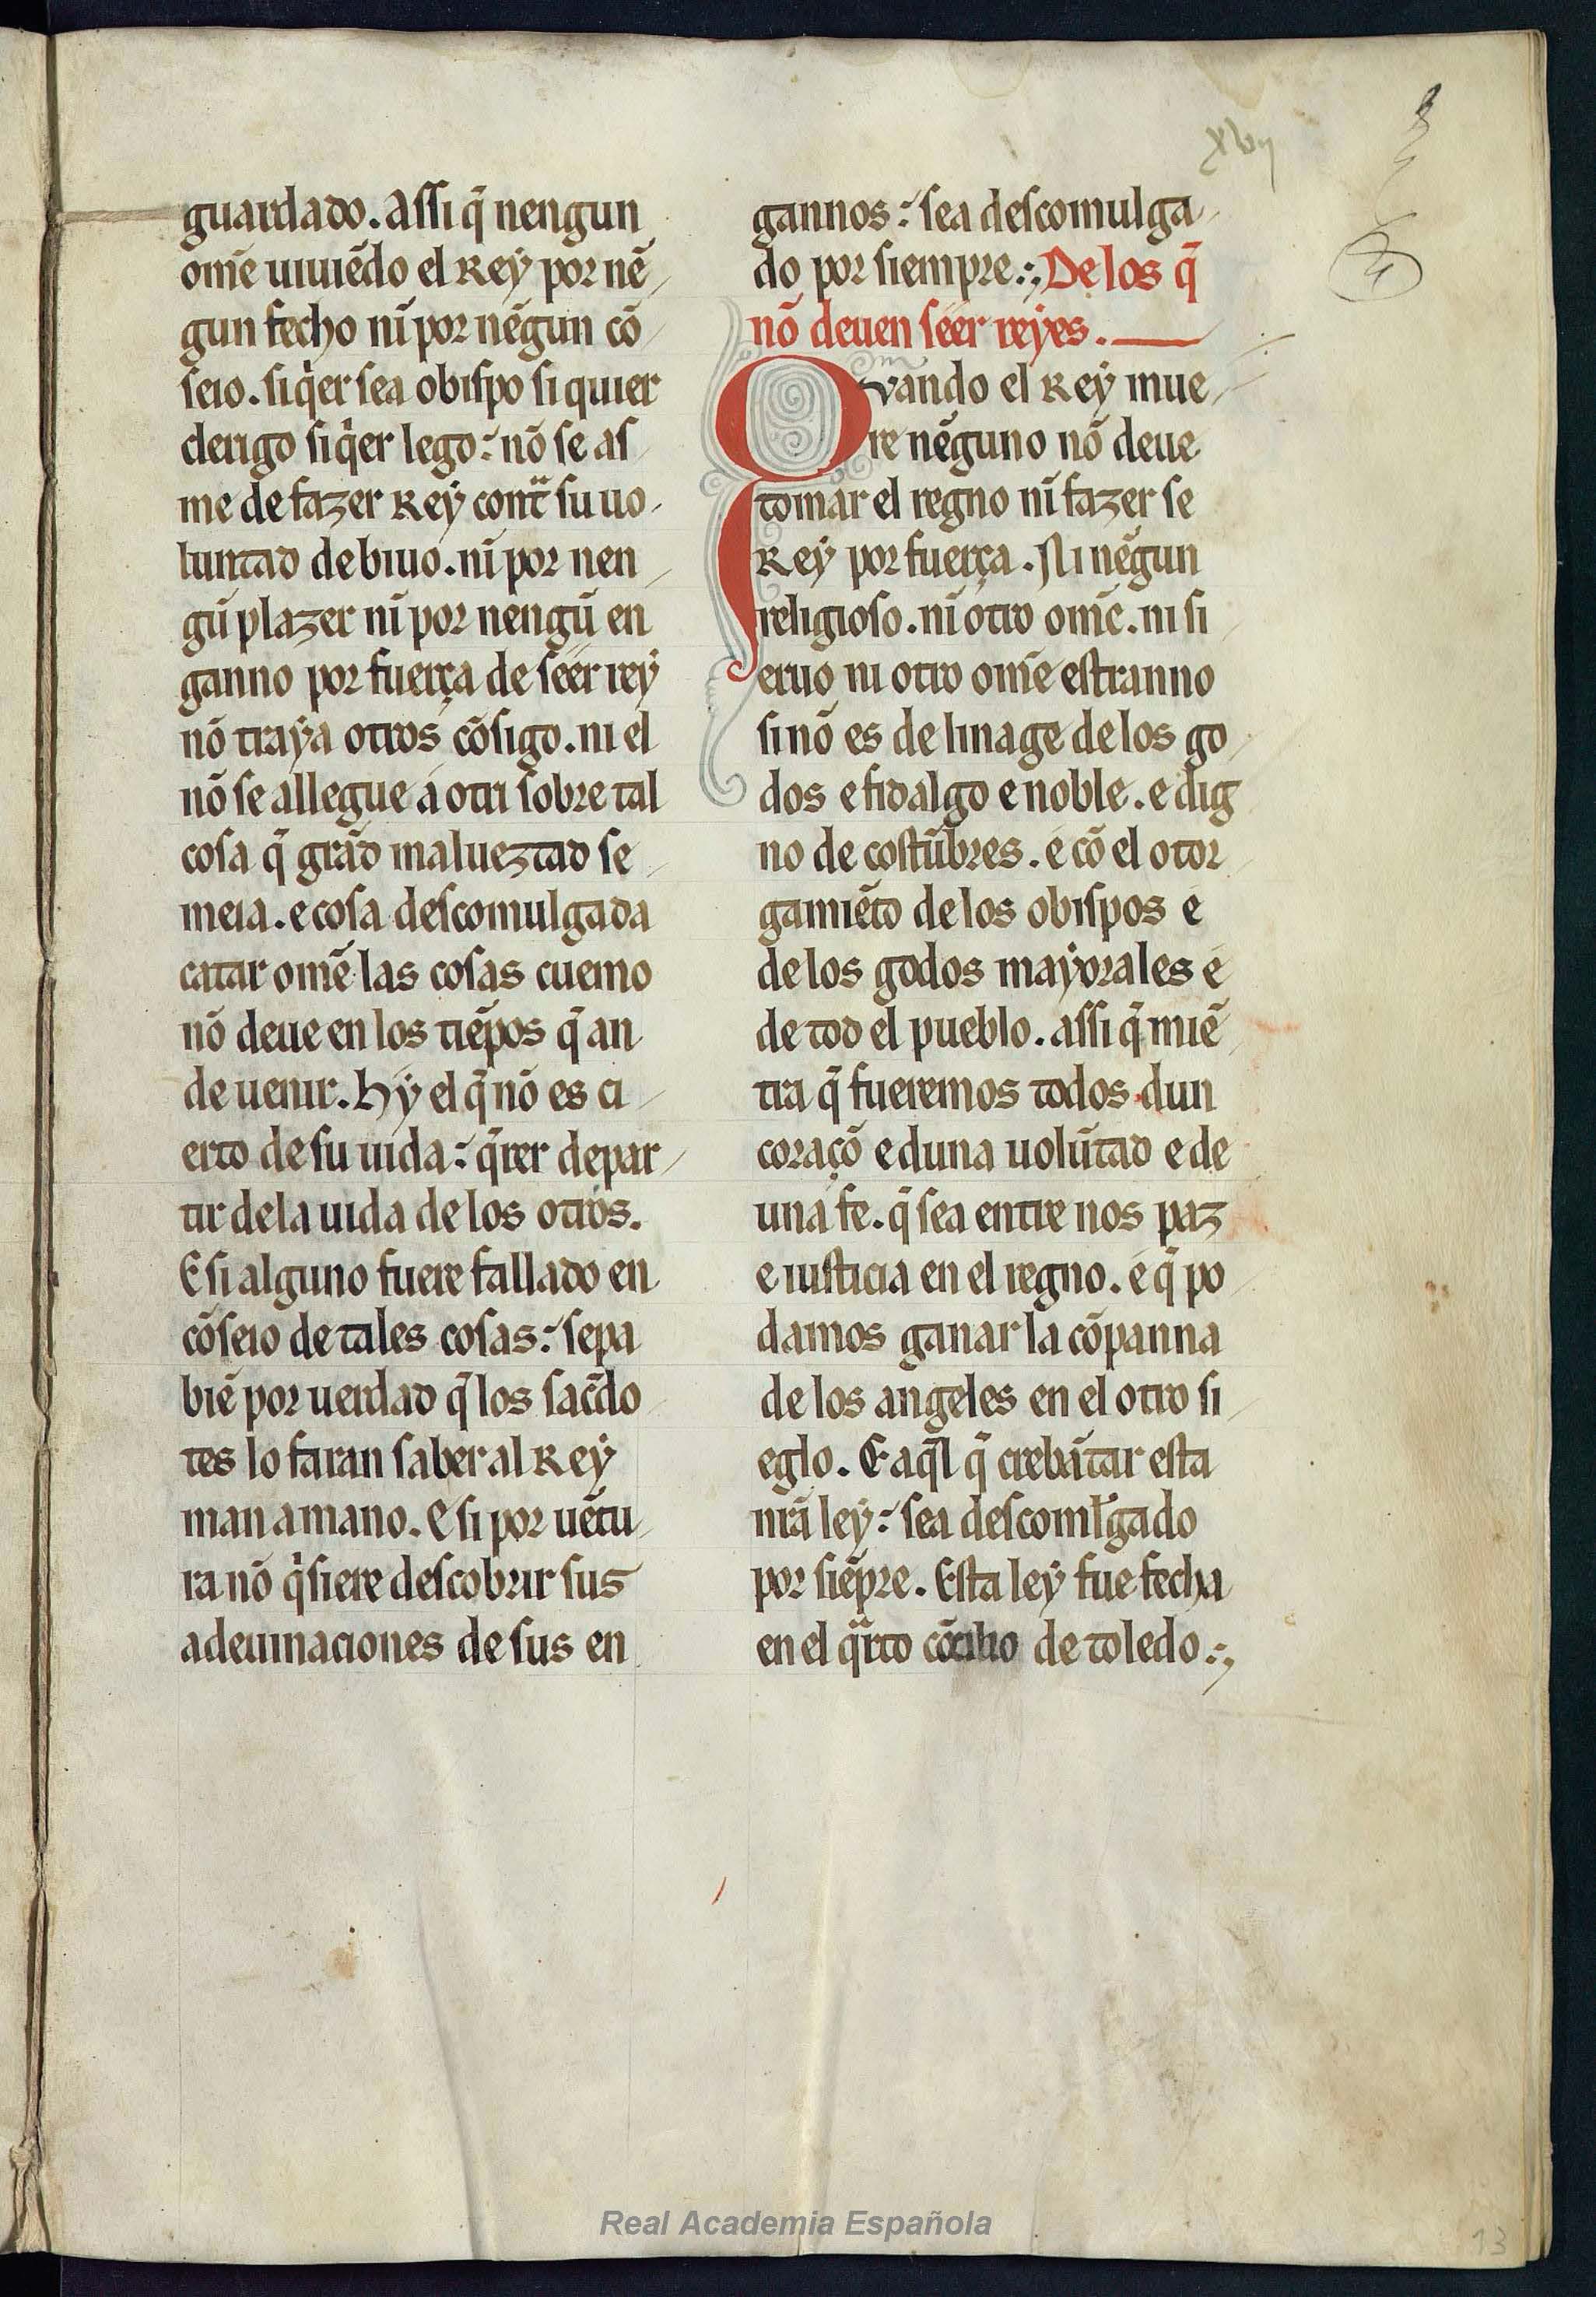 xvij
guardado. assi q̃ nengun
om̃e uiuiẽdo el Rey por nẽ
gun fecho nĩ por nẽgun cõ
seio. siq̃er sea obispo si quier
clerigo siq̃er lego: nõ se as
me de fazer Rey cont̃ su uo
luntad de biuo. nĩ por nen
gũ plazer nĩ por nengũ en
ganno por fuerça de seer rey
nõ traya otros cõsigo. ni el
nõ se allegue a otri sobre tal
cosa q̃ grãd malueztad se
meia. e cosa descomulgada
catar om̃e las cosas cuemo
nõ deue en los tiẽpos q̃ an
de uenir. Hy el q̃ nõ es ci
erto de su uida: q̃rer depar
tir dela uida de los otros.
E si alguno fuere fallado en
cõseio de tales cosas: sepa
biẽ por uerdad q̃ los sac̃do
tes lo faran saber al Rey
man a mano. E si por uẽtu
ra nõ q̃siere descobrir sus
adeuinaciones de sus en
gannos: sea descomulga
do por siempre:, De los q̃
nõ deuen seer reyes.
Quando el Rey mue
re nẽguno nõ deue
tomar el regno nĩ fazer se
Rey por fuerça. Ni nẽgun
religioso. nĩ otro om̃e. ni si
eruo ni otro om̃e estranno
si nõ es de linage de los go
dos e fidalgo e noble. e dig
no de costũbres. e cõ el otor
gamiẽto de los obispos e
de los godos mayorales e
de tod el pueblo. assi q̃ miẽ
tra q̃ fueremos todos dun
coraçõ e duna uolũtad e de
una fe. q̃ sea entre nos paz
e iusticia en el regno. e q̃ po
damos ganar la cõpanna
de los angeles en el otro si
eglo. E aq̃l q̃ crebãtar esta
nr̃a ley: sea descoml̃gado
por siẽpre. Esta ley fue fecha
en el q̃rto cõcilio de toledo:,
Real Academia Española
13